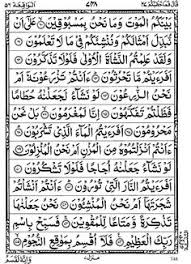 بَيْنَكُمُ الْمَوْتَ وَمَا نَحْنُ بِمَسْبُوْقِيْنَ عَلٰٓى اَنْ
نُّبَدِّلَ اَمْثَالَكُمْ وَنُنْشِئَكُمْ فِيْ مَا لَا تَعْلَمُوْنَ
وَلَقَدْ عَلِمْتُمُ النَّشْاَةَ الْاُوْلٰى فَلَوْ لَا تَذَكَّرُوْنَ
اَفَرَءَيْتُمْ مَّا تَحْرُثُوْنَ ءَاَنْتُمْ تَزْرَعُوْنَهٗٓ اَمْ
نَحْنُ الزّٰرِعُوْنَ لَوْ نَشَآءُ لَجَعَلْنٰهُ حُطَامًا
فَظَلْتُمْ تَفَكَّهُوْنَ اِنَّا لَمُغْرَمُوْنَ بَلْ نَحْنُ
مَحْرُوْمُوْنَ اَفَرَءَيْتُمُ الْمَآءَ الَّذِيْ تَشْرَبُوْنَ
ءَاَنْتُمْ اَنْزَلْتُمُوْهُ مِنَ الْمُزْنِ اَمْ نَحْنُ الْمُنْزِلُوْنَ
لَوْ نَشَآءُ جَعَلْنٰهُ اُجَاجًا فَلَوْ لَا تَشْكُرُوْنَ
اَفَرَءَيْتُمُ النَّارَ الَّتِيْ تُوْرُوْنَ ءَاَنْتُمْ اَنْشَاْتُمْ
شَجَرَتَهَآ اَمْ نَحْنُ الْمُنْشِئُوْنَ نَحْنُ جَعَلْنٰهَا
تَذْكِرَةً وَّمَتَاعًا لِّلْمُقْوِيْنَ فَسَبِّحْ بِاسْمِ
رَبِّكَ الْعَظِيْمِ فَلَآ اُقْسِمُ بِمَوٰقِعِ النُّجُوْمِ